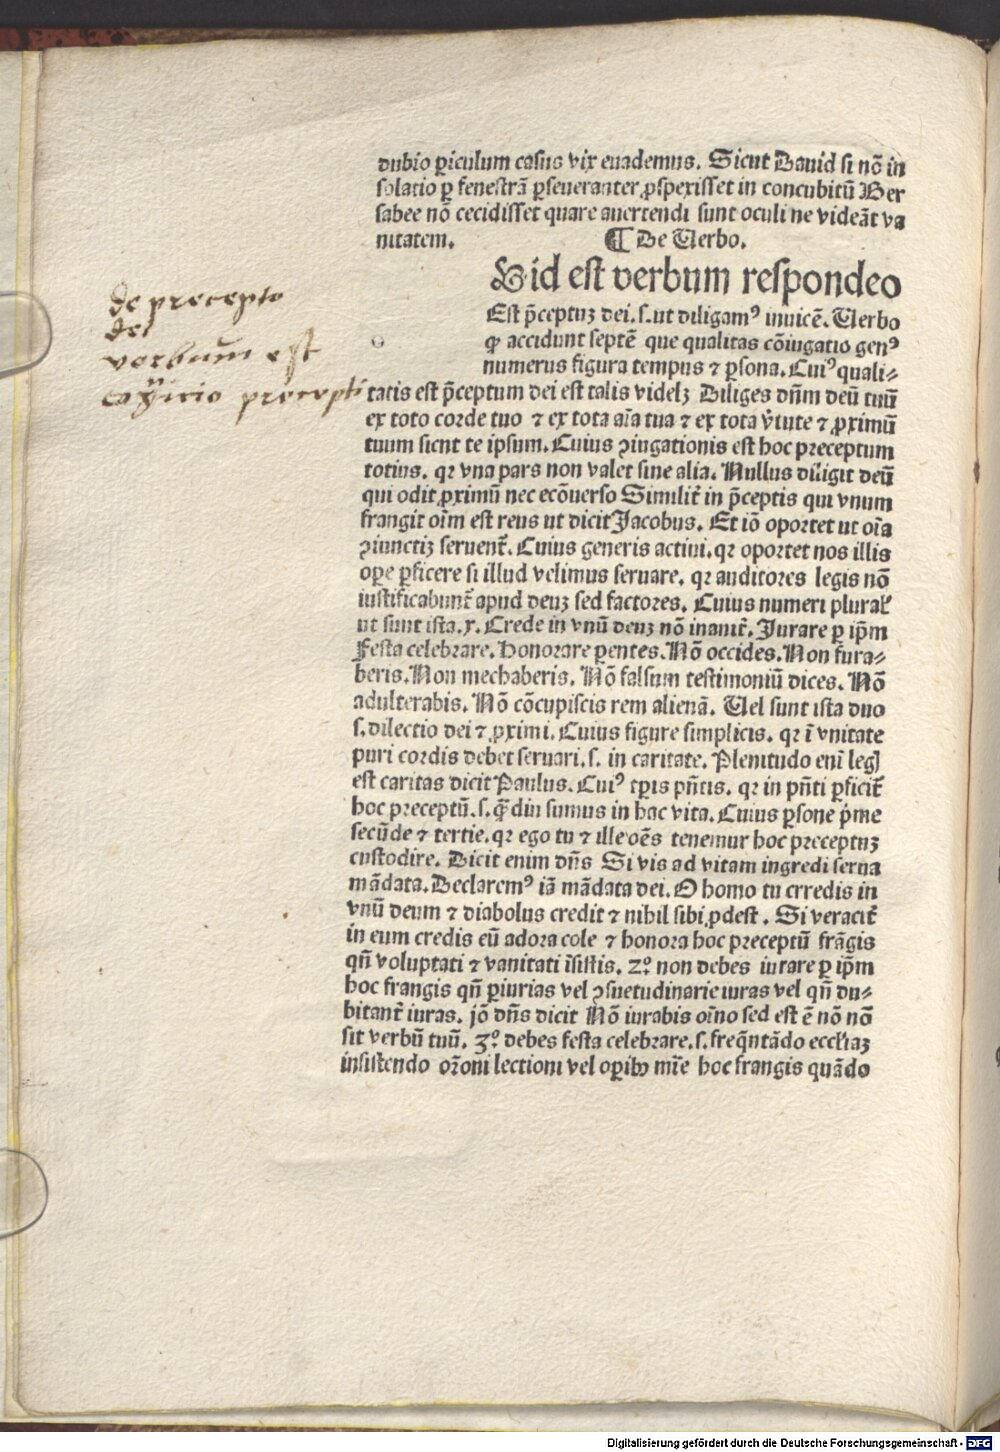 dubio ꝑiculum casus vix euademus. Sicut Dauid si nō in
solatio ꝑ fenestrā ꝑseueranter ꝓspexisset in concubitū Ber
sabee nō cecidisset quare auertendi sunt oculi ne videāt va
nitatem. ¶ De Uerbo.
Uid est verbum respondeo
Est p̄ceptuꝫ dei .s. ut diligamꝰ inuicē. Uerbo
o
ꝙ accidunt septē que qualitas cōiugatio genꝰ
numerus figura tempus ⁊ ꝑsona. Cuiꝰ quali⸗
de precepto
dei
verbum est
precepti
tatis est p̄ceptum dei est talis videlꝫ Diliges dn̄m deū tuū
ex toto corde tuo ⁊ ex tota aīa tua ⁊ ex tota v̄tute ⁊ ꝓximū
tuum sicut te ipsum. Cuius ꝯiugationis est hoc preceptum
totius. qr vna pars non valet sine alia. Nullus diligit deū
qui odit ꝓximū nec ecōuerso Similit̄ in p̄ceptis qui vnum
frangit oīm est reus ut dicit Jacobus. Et iō oportet ut oīa
ꝯiunctiꝫ seruent̄. Cuius generis actiui. qr oportet nos illis
oꝑe ꝑficere si illud velimus seruare. qr auditores legis nō
iustificabunt̄ apud deuꝫ sed factores. Cuius numeri plural̓
ut sunt ista .x. Crede in vnū deuꝫ nō inanit̄. Jurare ꝑ ip̄m
Festa celebrare. Honorare ꝑentes. Nō occides. Non fura⸗
beris. Non mechaberis. Nō falsum testimoniū dices. Nō
adulterabis. Nō cōcupiscis rem alienā. Uel sunt ista duo
.s. dilectio dei ⁊ ꝓximi. Cuius figure simplicis. qr ī vnitate
puri cordis debet seruari .s. in caritate. Plenitudo enī legꝭ
est caritas dicit Paulus. Cuiꝰ tꝑis pn̄tis. qr in pn̄ti ꝑficit̄
hoc preceptū .s. q̄ diu sumus in hac vita. Cuius ꝑsone p̄me
secūde ⁊ tertie. qr ego tu ⁊ ille oēs tenemur hoc preceptuꝫ
custodire. Dicit enim dn̄s Si vis ad vitam ingredi serua
mādata. Declaremꝰ iā mādata dei. O homo tu crredis in
vnū deum ⁊ diabolus credit ⁊ nihil sibi ꝓdest. Si veracit̄
in eum credis eū adora cole ⁊ honora hoc preceptū frāgis
qn̄ voluptati ⁊ vanitati īsistis. 2º non debes iurare ꝑ ip̄m
hoc frangis qn̄ ꝑiurias vel ꝯsuetudinarie iuras vel qn̄ du⸗
bitant̄ iuras. jō dn̄s dicit Nō iurabis oīno sed est ē nō nō
sit verbū tuū. 3º debes festa celebrare .s. freq̄ntādo eccl̄iaꝫ
insistendo or̄oni lectioni vel oꝑibꝰ mīe hoc frangis quādo
Digitalisierung gefördert durch die Deutsche Forschungsgemeinschaft - DFG